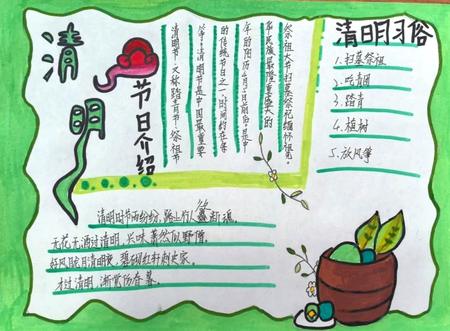 清明
节日介绍
清明节,又称踏青节、祭祖节
等。清明节是中国最重要
的传统节日之一,时间约在每
年的阳历4月5日前后,是中
华民族最隆重盛大的
祭祖大节扫墓祭祀缅怀祖先。
清明习俗
1.扫墓祭祖
2.吃青团
3.踏青
4.植树
5.放风筝
清明时节雨纷纷,路上行人断魂。
无花无酒过清明,兴味萧然似野僧。
好风胧月清明夜,碧砌红轩刺史家。
才过清明,渐觉伤春暮。